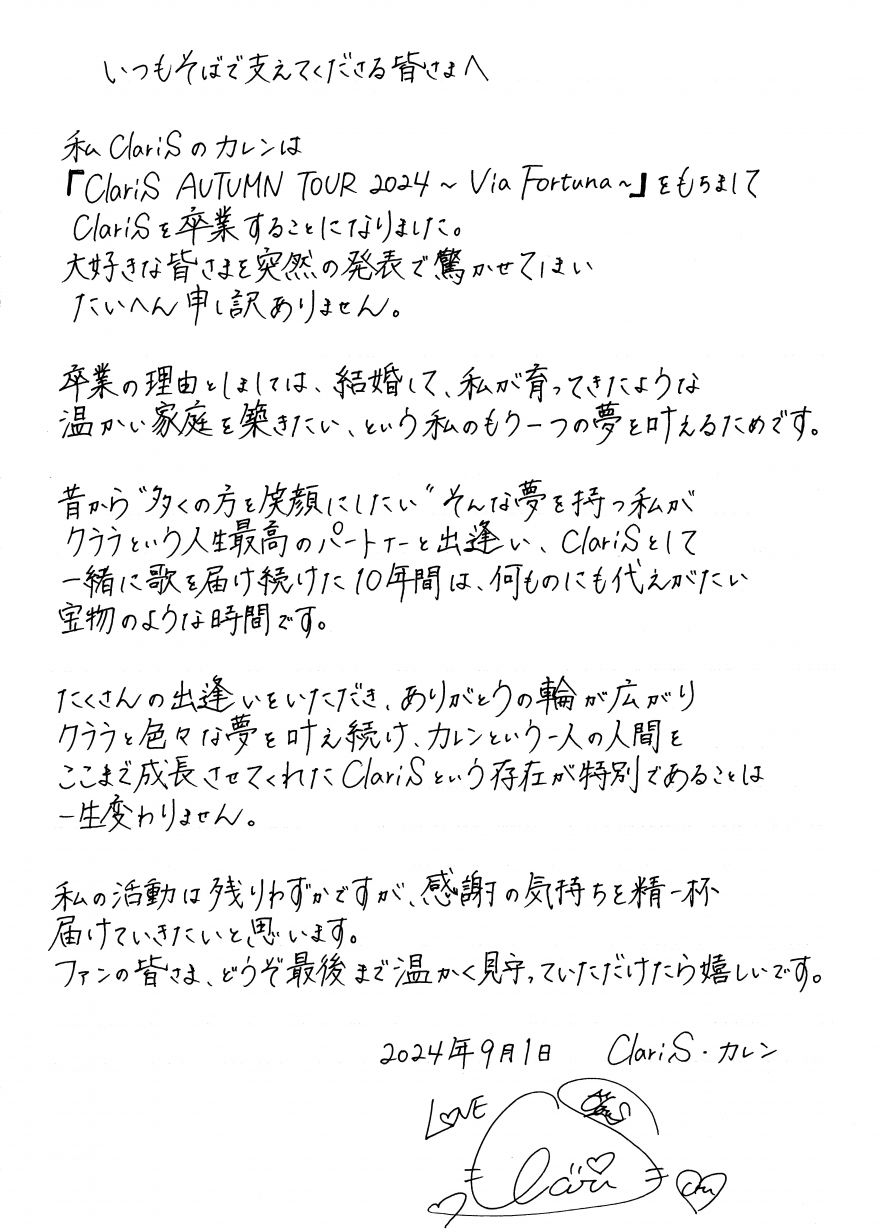 いつもそばで支えてくださる皆さまへ
私ClariSのカレンは
『ClariS AUTUMN TOUR 2024～Via Fortuna～』をもちまして
ClariSを卒業することになりました。
大好きな皆さまを突然の発表で驚かせてしまい
たいへん申し訳ありません。
卒業の理由としましては、結婚して、私が育ってきたような
温かい家庭を築きたい、という私のもう一つの夢を叶えるためです。
昔から“多くの方を笑顔にしたい”そんな夢を持つ私が
クララという人生最高のパートナーと出逢い、ClariSとして
一緒に歌を届け続けた10年間は、何ものにも代えがたい
宝物のような時間です。
たくさんの出逢いをいただき、ありがとうの輪が広がり
クララと色々な夢を叶え続け、カレンという一人の人間を
ここまで成長させてくれたClariSという存在が特別であることは
一生変わりません。
私の活動は残りわずかですが、感謝の気持ちを精一杯
届けていきたいと思います。
ファンの皆さま、どうぞ最後まで温かく見守っていただけたら嬉しいです。
2024年9月1日 ClariS・カレン
LOVE